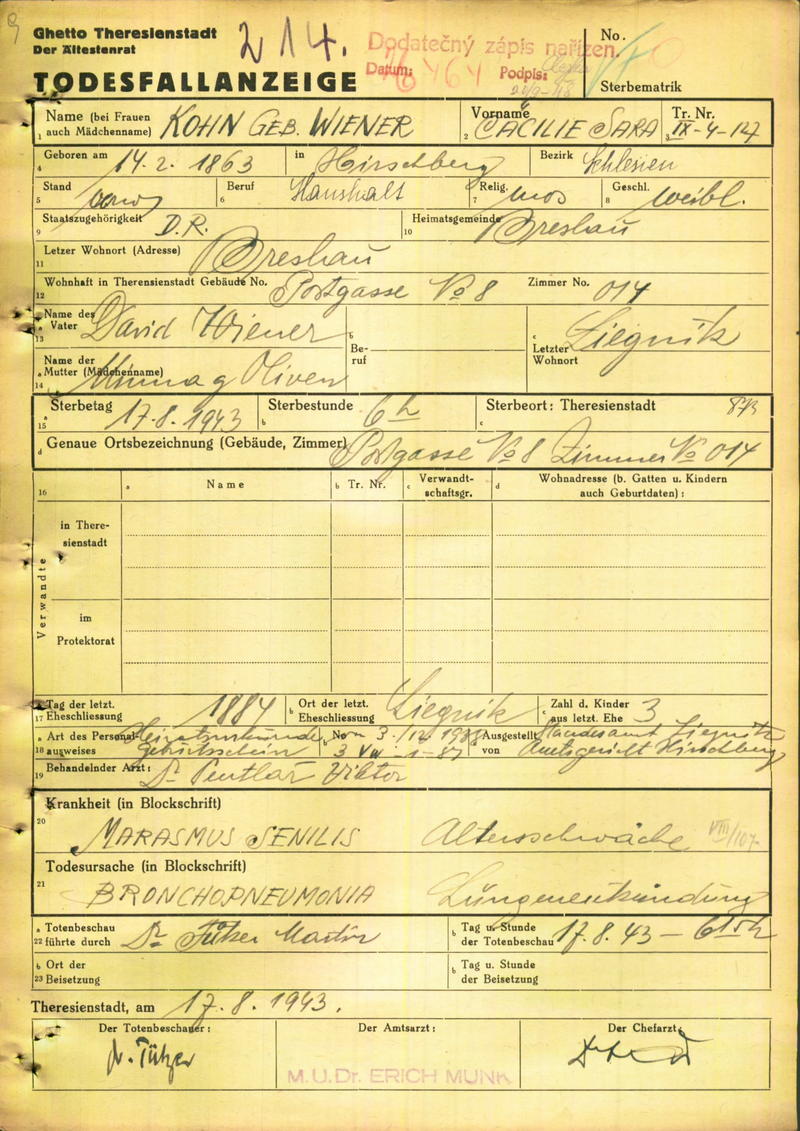 Ghetto Theresienstadt
Der Ältestenrat
TODESFALLANZEIGE
214.
Dodatečný zápis nařízen.
Datum:
Podpis:
No.
Sterbematrik
Name (bei Frauen auch Mädchenname) KOHN GEB. WIENER
1
Vorname CÄCILIE SARA
2
Tr. Nr. IX-4-127
3
Geboren am 14.2.1863 in Hirschberg Bezirk Schlesien
4
Stand verw Beruf Haushalt Relig. mos Geschl. weibl.
5 6 7 8
Staatszugehörigkeit D.R. Heimatsgemeinde Breslau
9 10
Letzer Wohnort (Adresse) Breslau
11
Wohnhaft in Theresienstadt Gebäude No. Postgasse No 8 Zimmer No. 014
12
Name des Vater David Wiener
13
Be-ruf
Letzter Wohnort Liegnitz
Name der Mutter (Mädchenname) Minna g Oliven
14
Sterbetag 17.8.1943 Sterbestunde 6h Sterbeort: Theresienstadt
15
Genaue Ortsbezeichnung (Gebäude, Zimmer) Postgasse No 8 Zimmer No 014
16 a Name b Tr. Nr. c Verwandt-schaftsgr. d Wohnadresse (b. Gatten u. Kindern auch Geburtdaten) :
Verwandte
in There-sienstadt
im Protektorat
Tag der letzt. Eheschliessung 1884 Ort der letzt. Eheschliessung Liegnitz Zahl d. Kinder aus letzt. Ehe 3
17
Art des Personal-ausweises Heiratsurkunde Geburtsschein
18
Ausgestellt von Standesamt Liegnitz Amtsgericht Hirschberg
Behandelnder Arzt: Dr Pentlař Viktor
19
Krankheit (in Blockschrift)
20
MARASMUS SENILIS Altersschwäche
Todesursache (in Blockschrift)
21
BRONCHOPNEUMONIA Lungenentzündung
Totenbeschau führte durch Dr Tützer Martin
22
Tag u. Stunde der Totenbeschau 17.8.43 –
Ort der Beisetzung
23
Tag u. Stunde der Beisetzung
Theresienstadt, am 17.8.1943.
Der Totenbeschauer: Der Amtsarzt: Der Chefarzt:
Dr. Tützer
M.U.Dr. ERICH MUNK